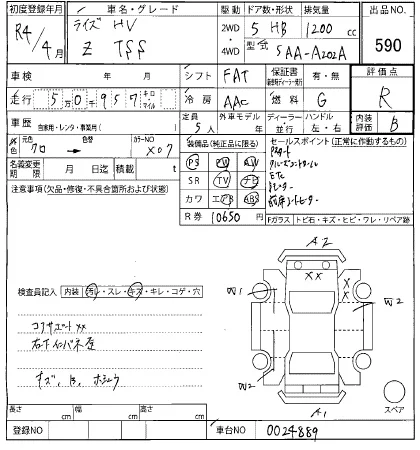 初度登録年月
車名・グレード
駆動
ドア数・形状
排気量
出品NO.
R4/4月
ライズ HV
Z
2WD
4WD
5 HB
1200 cc
型式
5AA-A202A
590
車検
年
月
シフト
FAT
保証書
有・無
評価点
走行
5万0千957
キロ
マイル
冷房
AAC
燃料
G
R
車歴
自家用・レンタ・事業用
定員
5人
外車モデル
年
ディーラー
並行
ハンドル
左・右
内装
評価
B
外色
元色
クロ
色替
カラーNO
X07
装備品(純正品に限る)
PS PW AW
SR TV ナビ
カワ エアB ABS
セールスポイント(正常に作動するもの)
ETC
名義変更
期限
月
日迄
積載
t
注意事項(欠品・修復・不具合箇所および状態)
R券
10650
円
Fガラス
トビ石・キズ・ヒビ・ワレ・リペア跡
A2
XX
X
X
W1
W2
W2
A1
検査員記入
内装
汚レ・スレ・キズ・キレ・コゲ・穴
コアサポートXX
右フロインパネ歪
キズ、
スペア
長さ
cm
幅
cm
高さ
cm
登録NO
車台NO
0024889